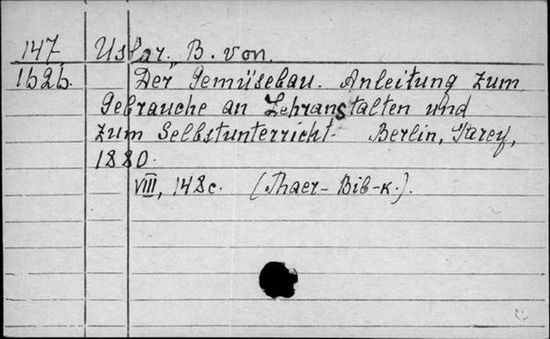 147 Uslar, B. von.
1626. Der Gemüsebau. Anleitung zum
Gebrauche an Lehranstalten und
zum Selbstunterricht. Berlin, Parey,
1880.
VIII, 148c. (Thaer-Bib-к.).